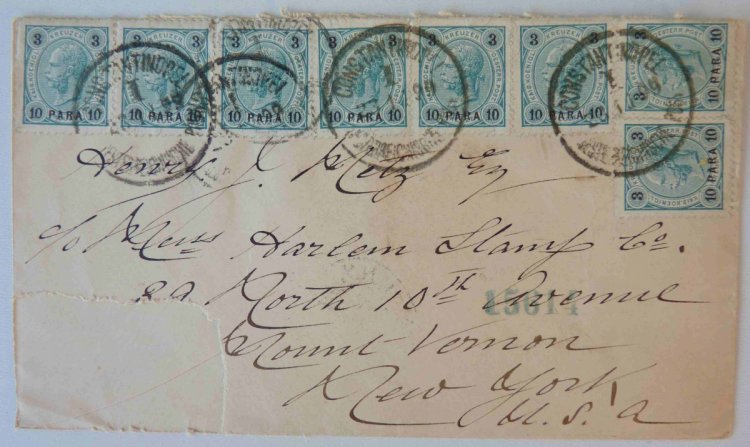 3 KREUZER 3 3 KREUZER 3 3 KREUZER 3 3 KREUZER 3 3 KREUZER 3 3 KREUZER 3
10 PARA 10 10 PARA 10 10 PARA 10 10 PARA 10 10 PARA 10 10 PARA 10
3 10 PARA 10
3 10 PARA 10
CONSTANTINOPEL
CONSTANTINOPEL
CONSTANTINOPEL
CONSTANTINOPEL
Henry J. Metz Esq
c/o Mess Harlem Stamp Co.
29 North 10th Avenue
15614
Mount Vernon
New York
U.S.a